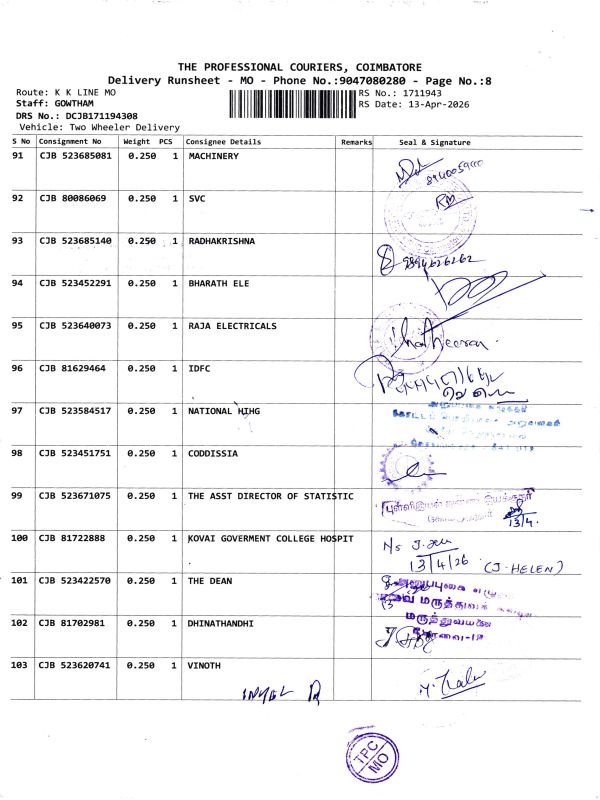 THE PROFESSIONAL COURIERS, COIMBATORE
Delivery Runsheet - MO - Phone No.:9047080280 - Page No.:8
Route: K K LINE MO RS No.: 1711943
Staff: GOWTHAM RS Date: 13-Apr-2026
DRS No.: DCJB171194308
Vehicle: Two Wheeler Delivery
S No Consignment No Weight PCS Consignee Details Remarks Seal & Signature
91 CJB 523685081 0.250 1 MACHINERY
92 CJB 80086069 0.250 1 SVC RM
93 CJB 523685140 0.250 1 RADHAKRISHNA
94 CJB 523452291 0.250 1 BHARATH ELE
95 CJB 523640073 0.250 1 RAJA ELECTRICALS
96 CJB 81629464 0.250 1 IDFC
97 CJB 523584517 0.250 1 NATIONAL HIHG
98 CJB 523451751 0.250 1 CODDISSIA
99 CJB 523671075 0.250 1 THE ASST DIRECTOR OF STATISTIC
13/4
100 CJB 81722888 0.250 1 KOVAI GOVERMENT COLLEGE HOSPIT
13/4/26 (J.HELEN)
101 CJB 523422570 0.250 1 THE DEAN
102 CJB 81702981 0.250 1 DHINATHANDHI
103 CJB 523620741 0.250 1 VINOTH
TPC
MO